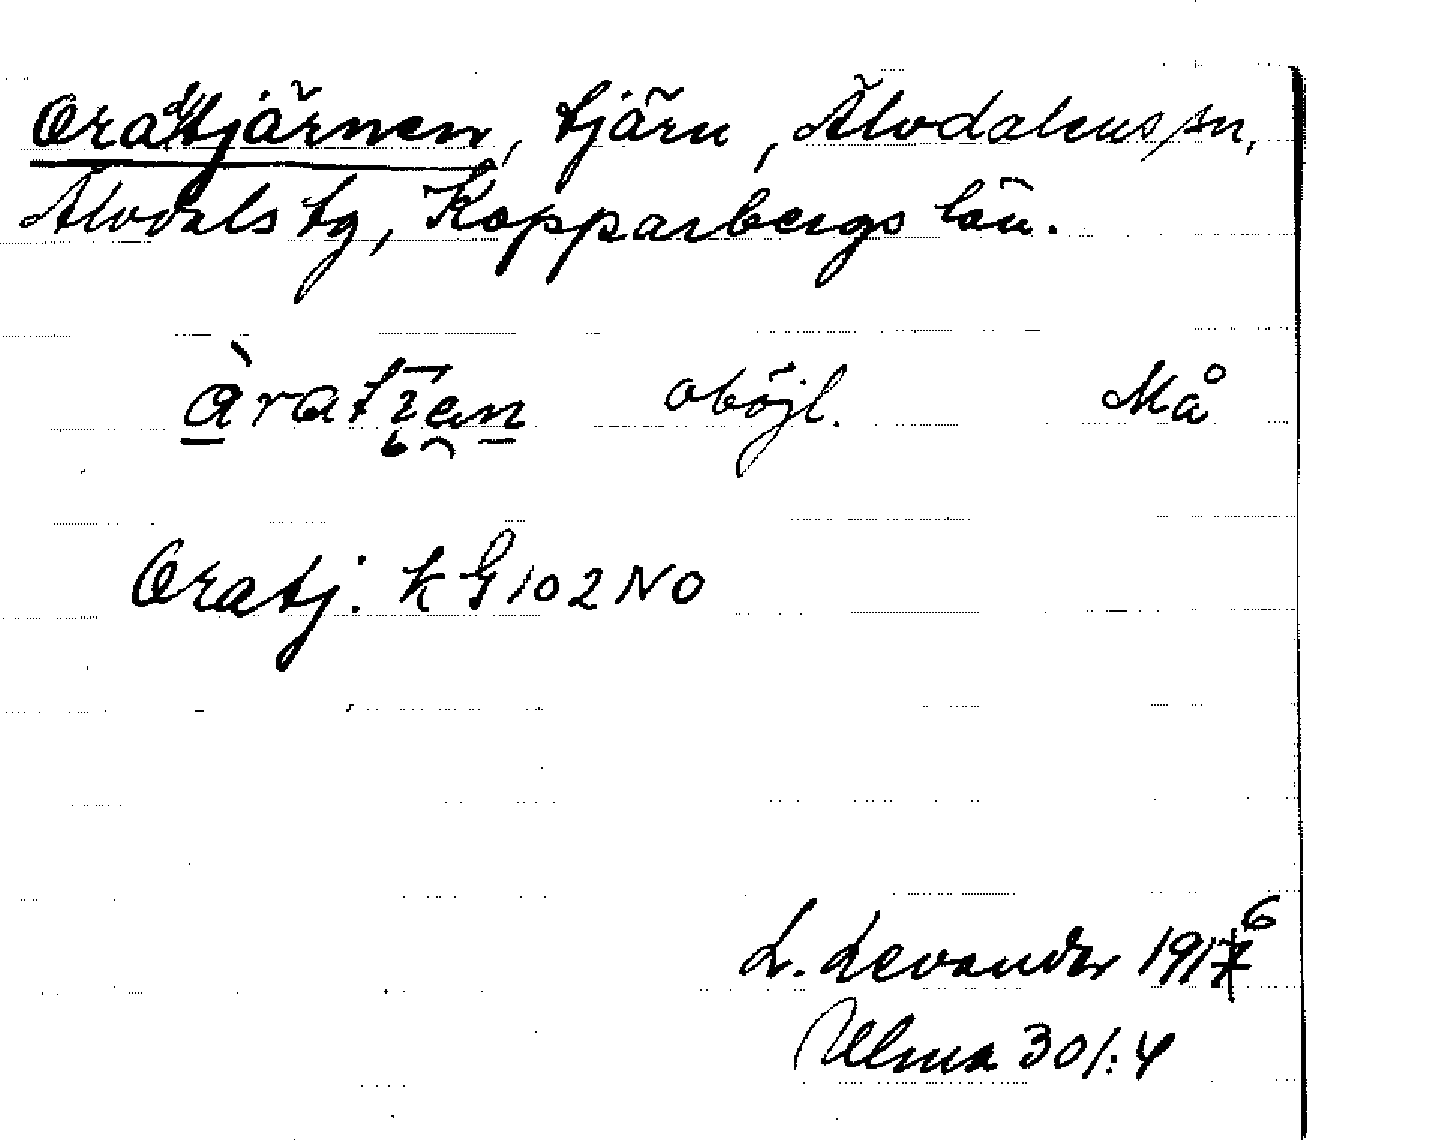 Oratjärnen, tjärn, Älvdalens sn,
Älvdals tg, Kopparbergs län.
àratı̄en oböjl. Må
Oratj: k G 102 NO
L. Levander 1916
Ulma 301:4